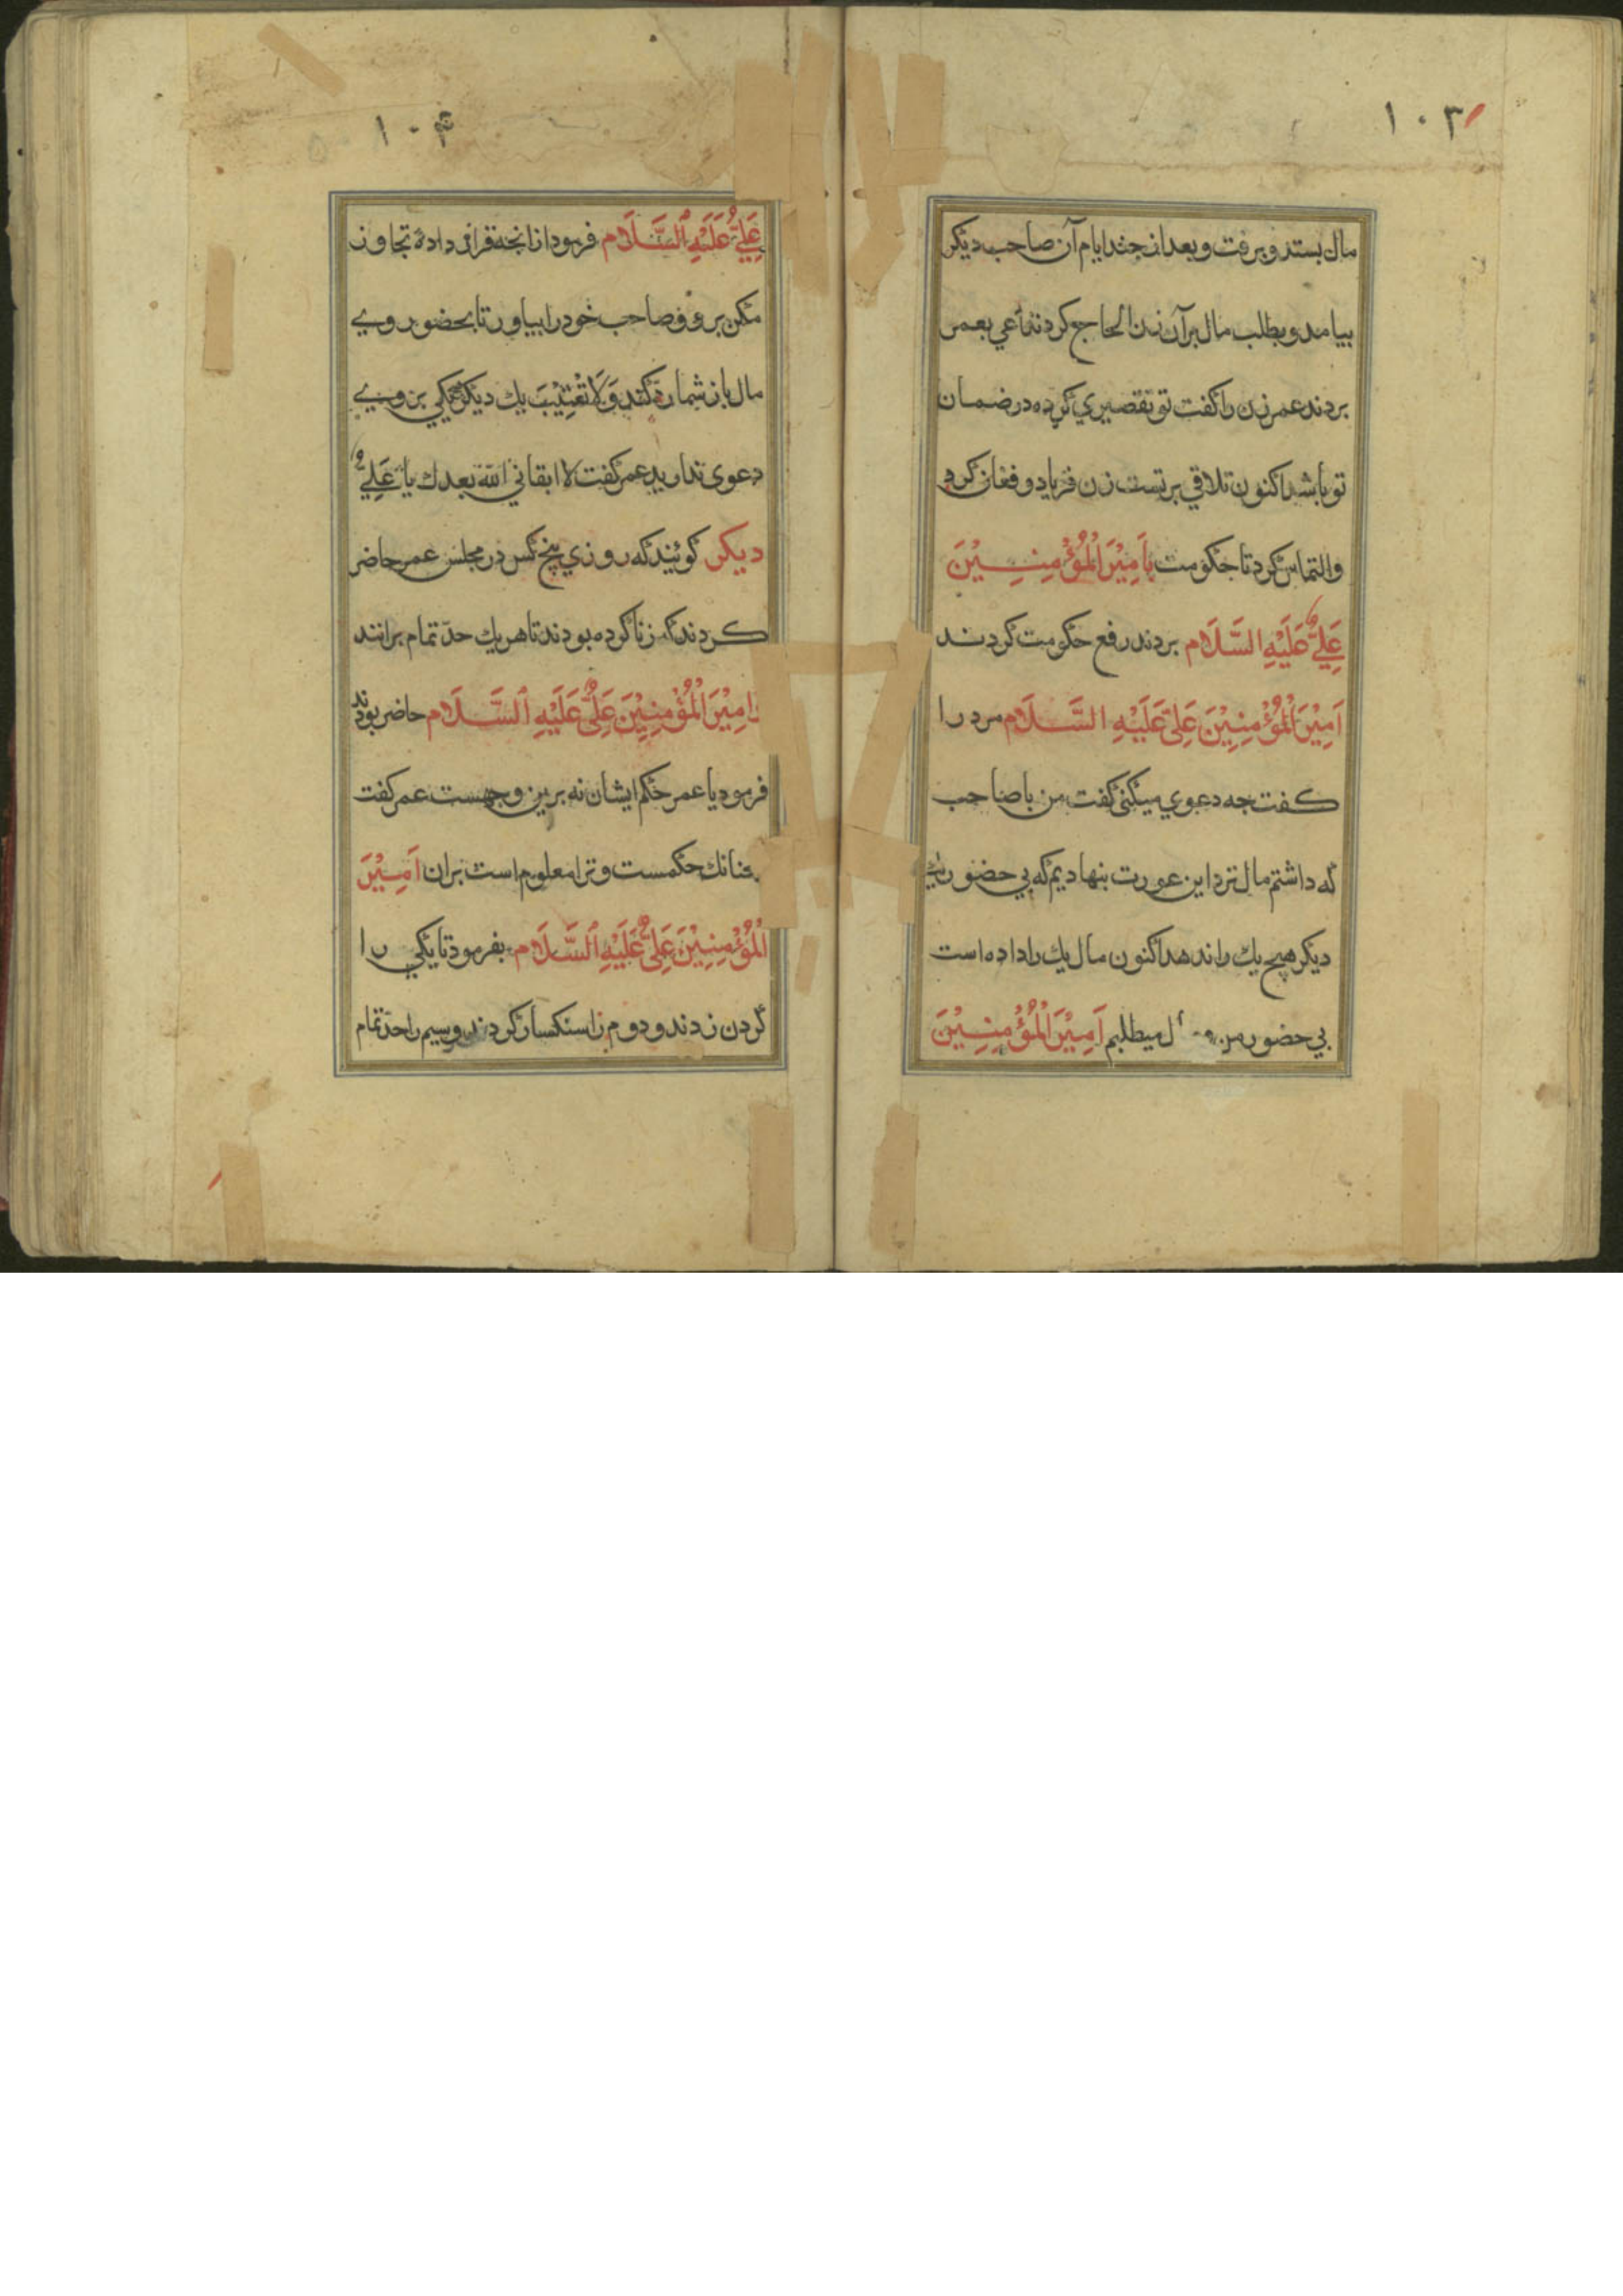 ۱۰۳
مال بستد و برفت و بعد از چند ایام آن صاحب دیکر
بیامد و بطلب مال بر آن زن الحاح کردند بعمر
بردند عمر زن را کفت تو تقصیری کرده در ضمان
تو باشد اکنون تلاقی بر تست زن فریاد و فغان کرد
والتماس کرد تا حکومت با اَمِیْرَ الْمُؤْمِنِیْنَ
عَلِیٌّ عَلَیْهِ السَّلَام بردند رفع حکومت کردند
اَمِیْرَ الْمُؤْمِنِیْنَ عَلِیّ عَلَیْهِ السَّلَام مرد را
کفت جه دعوی میکنی کفت من با صاحب
که داشتم مال نزد این عورت بنهادیم که بی حضور یك
دیکر هیچ یك را ندهد اکنون مال یك را داده است
بی حضور من میطلبم اَمِیْرَ الْمُؤْمِنِیْنَ
۱۰۴
عَلِیٌّ عَلَیْهِ السَّلَام فرمود از انجه قرار داده تجاوز
مکن برو و صاحب خود را بیاور تا بحضور وی
مال باز شما رد کند وَلَا یك دیکر بر وی
دعوی ندارید عمر کفت لا ابقانی الله بعدك یا عَلِیٌّ
دیکر کویند که روزی پنج کس در مجلس عمر حاضر
کردند که زنا کرده بودند تا هر یك حدّ تمام برانند
اَمِیْرَ الْمُؤْمِنِیْنَ عَلِیٌّ عَلَیْهِ السَّلَام حاضر بودند
فرمود یا عمر حکم ایشان نه برین وجهست عمر کفت
جنانك حکمست و ترا معلوم است بران اَمِیْرَ
الْمُؤْمِنِیْنَ عَلِیٌّ عَلَیْهِ السَّلَام بفرمود تا یکی را
کردن زدند و دوم را سنکسار کردند و سیم را حدّ تمام